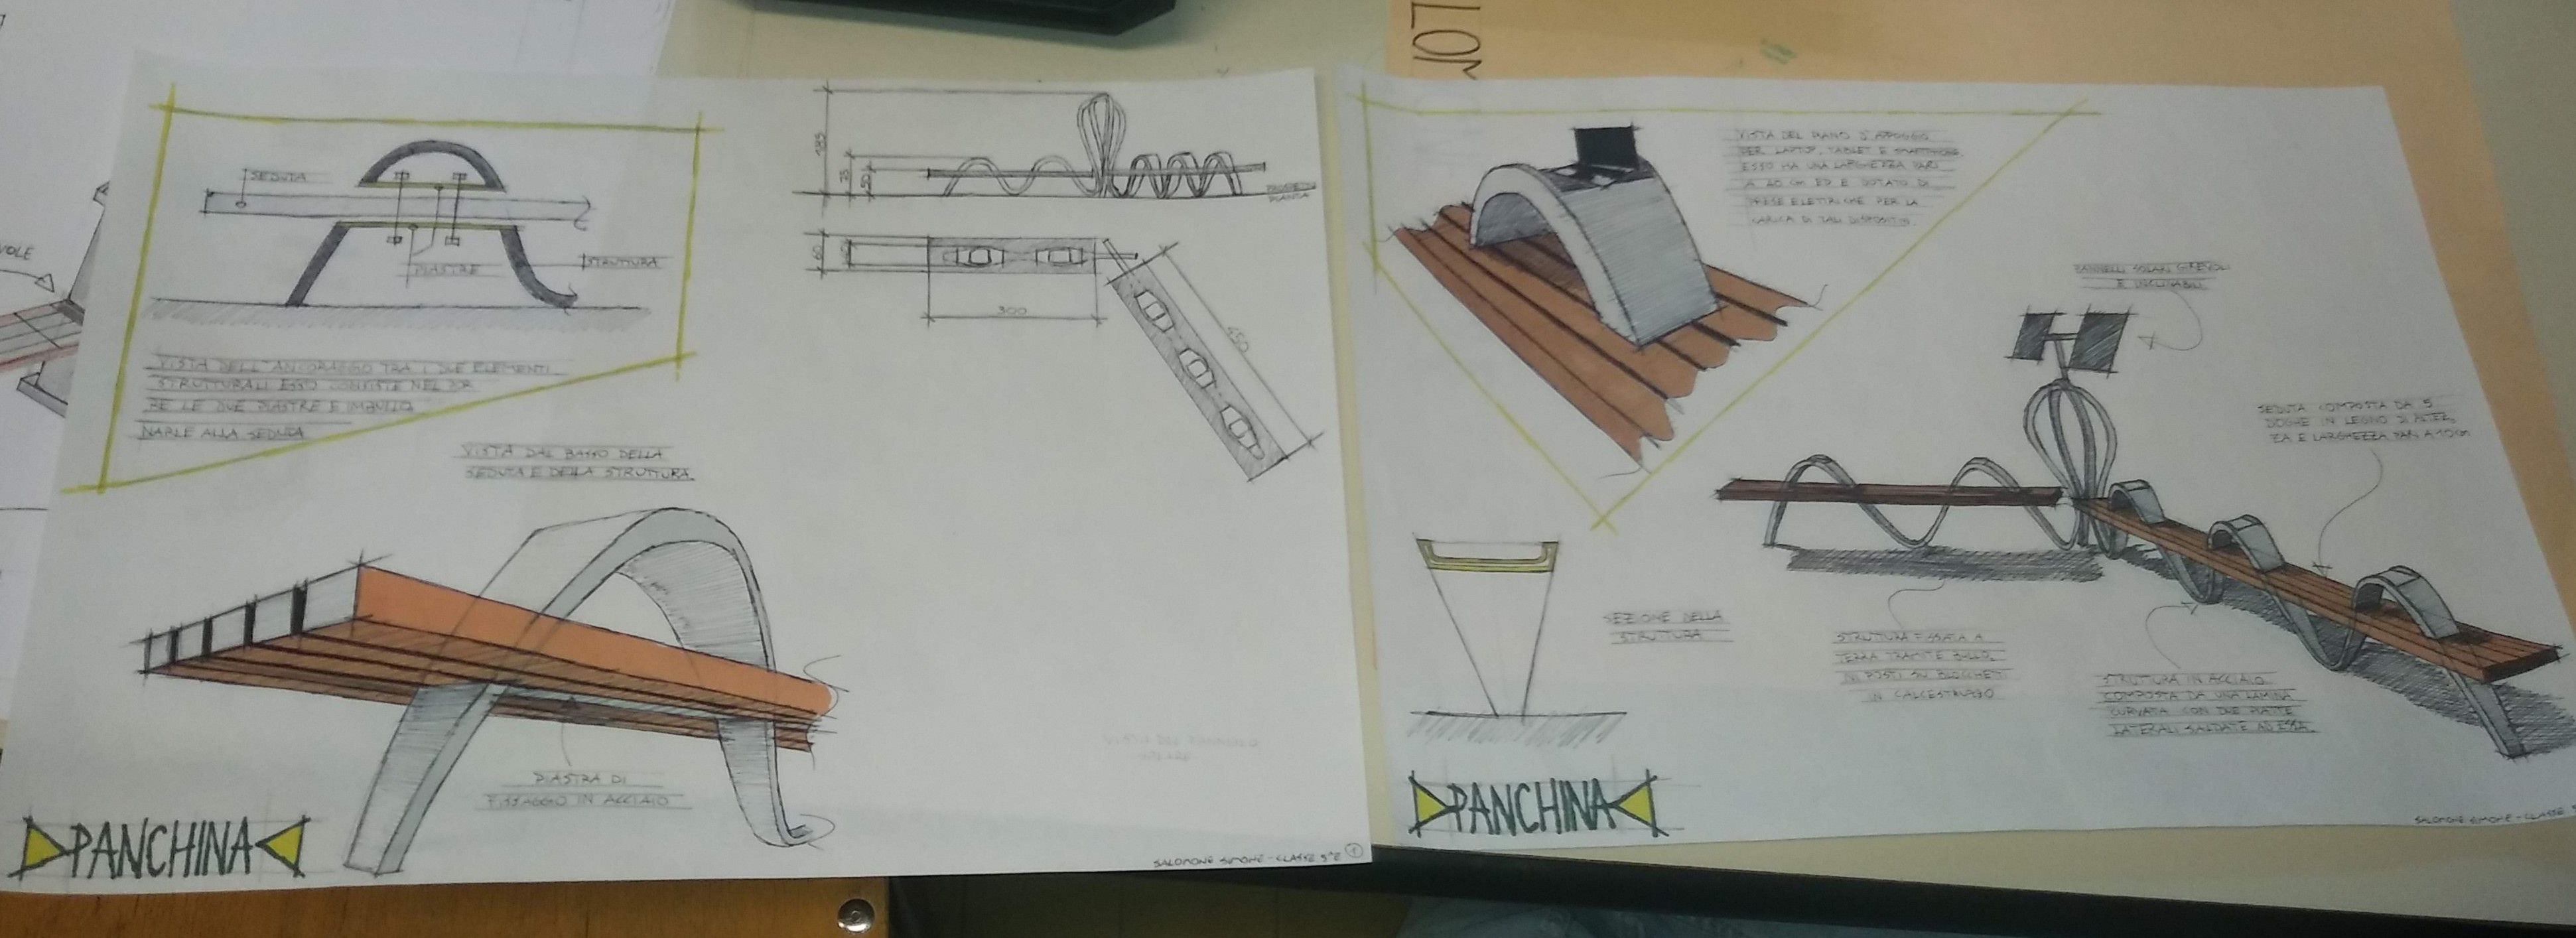 VOLE
SEDUTA
PIASTRE
STRUTTURA
VISTA DELL'ANCORAGGIO TRA I DUE ELEMENTI
STRUTTURALI ESSO CONSISTE NEL POR
RE LE DUE PIASTRE E IMBULLO
NARLE ALLA SEDUTA
VISTA DAL BASSO DELLA
SEDUTA E DELLA STRUTTURA.
PIASTRA DI
FISSAGGIO IN ACCIAIO
PANCHINA
185
75
50
PROSPETTO
PIANTA
60
300
450
SALOMONE SIMONE - CLASSE 5°E 1
NOT
VISTA DEL PIANO D'APPOGGIO
PER LAPTOP, TABLET E SMARTPHONE.
ESSO HA UNA LARGHEZZA PARI
A 40 cm ED È DOTATO DI
PRESE ELETTRICHE PER LA
CARICA DI TALI DISPOSITIVI.
PANNELLI SOLARI GIREVOLI
E INCLINABILI
SEDUTA COMPOSTA DA 5
DOGHE IN LEGNO DI ALTEZ
ZA E LARGHEZZA PARI A 10cm
SEZIONE DELLA
STRUTTURA
STRUTTURA FISSATA A
TERRA TRAMITE BULLO
NI POSTI SU BLOCCHETTI
IN CALCESTRUZZO
STRUTTURA IN ACCIAIO
COMPOSTA DA UNA LAMINA
CURVATA CON DUE PIATTE
LATERALI SALDATE AD ESSA.
PANCHINA
SALOMONE SIMONE - CLASSE 5